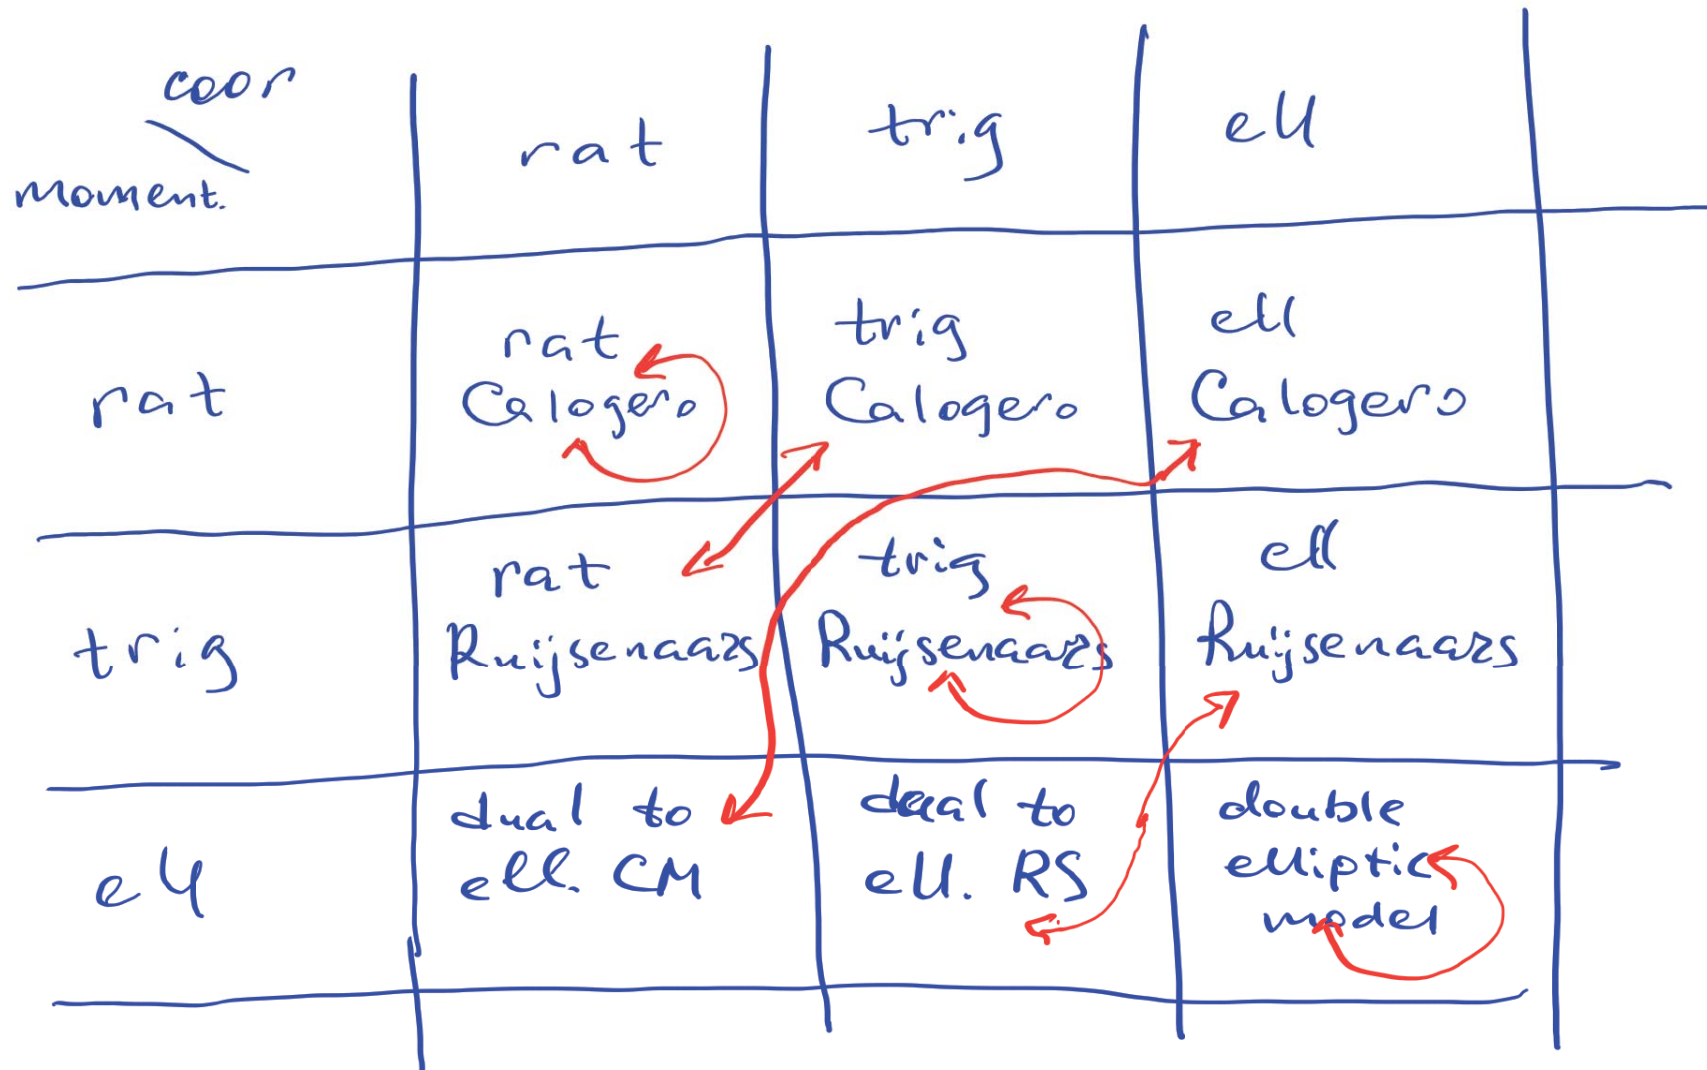 coor
Moment.
rat
trig
ell
rat
rat
Calogero
trig
Calogero
ell
Calogero
trig
rat
Ruijsenaars
trig
Ruijsenaars
ell
Ruijsenaars
ell
dual to
ell. CM
dual to
ell. RS
double
elliptic
model